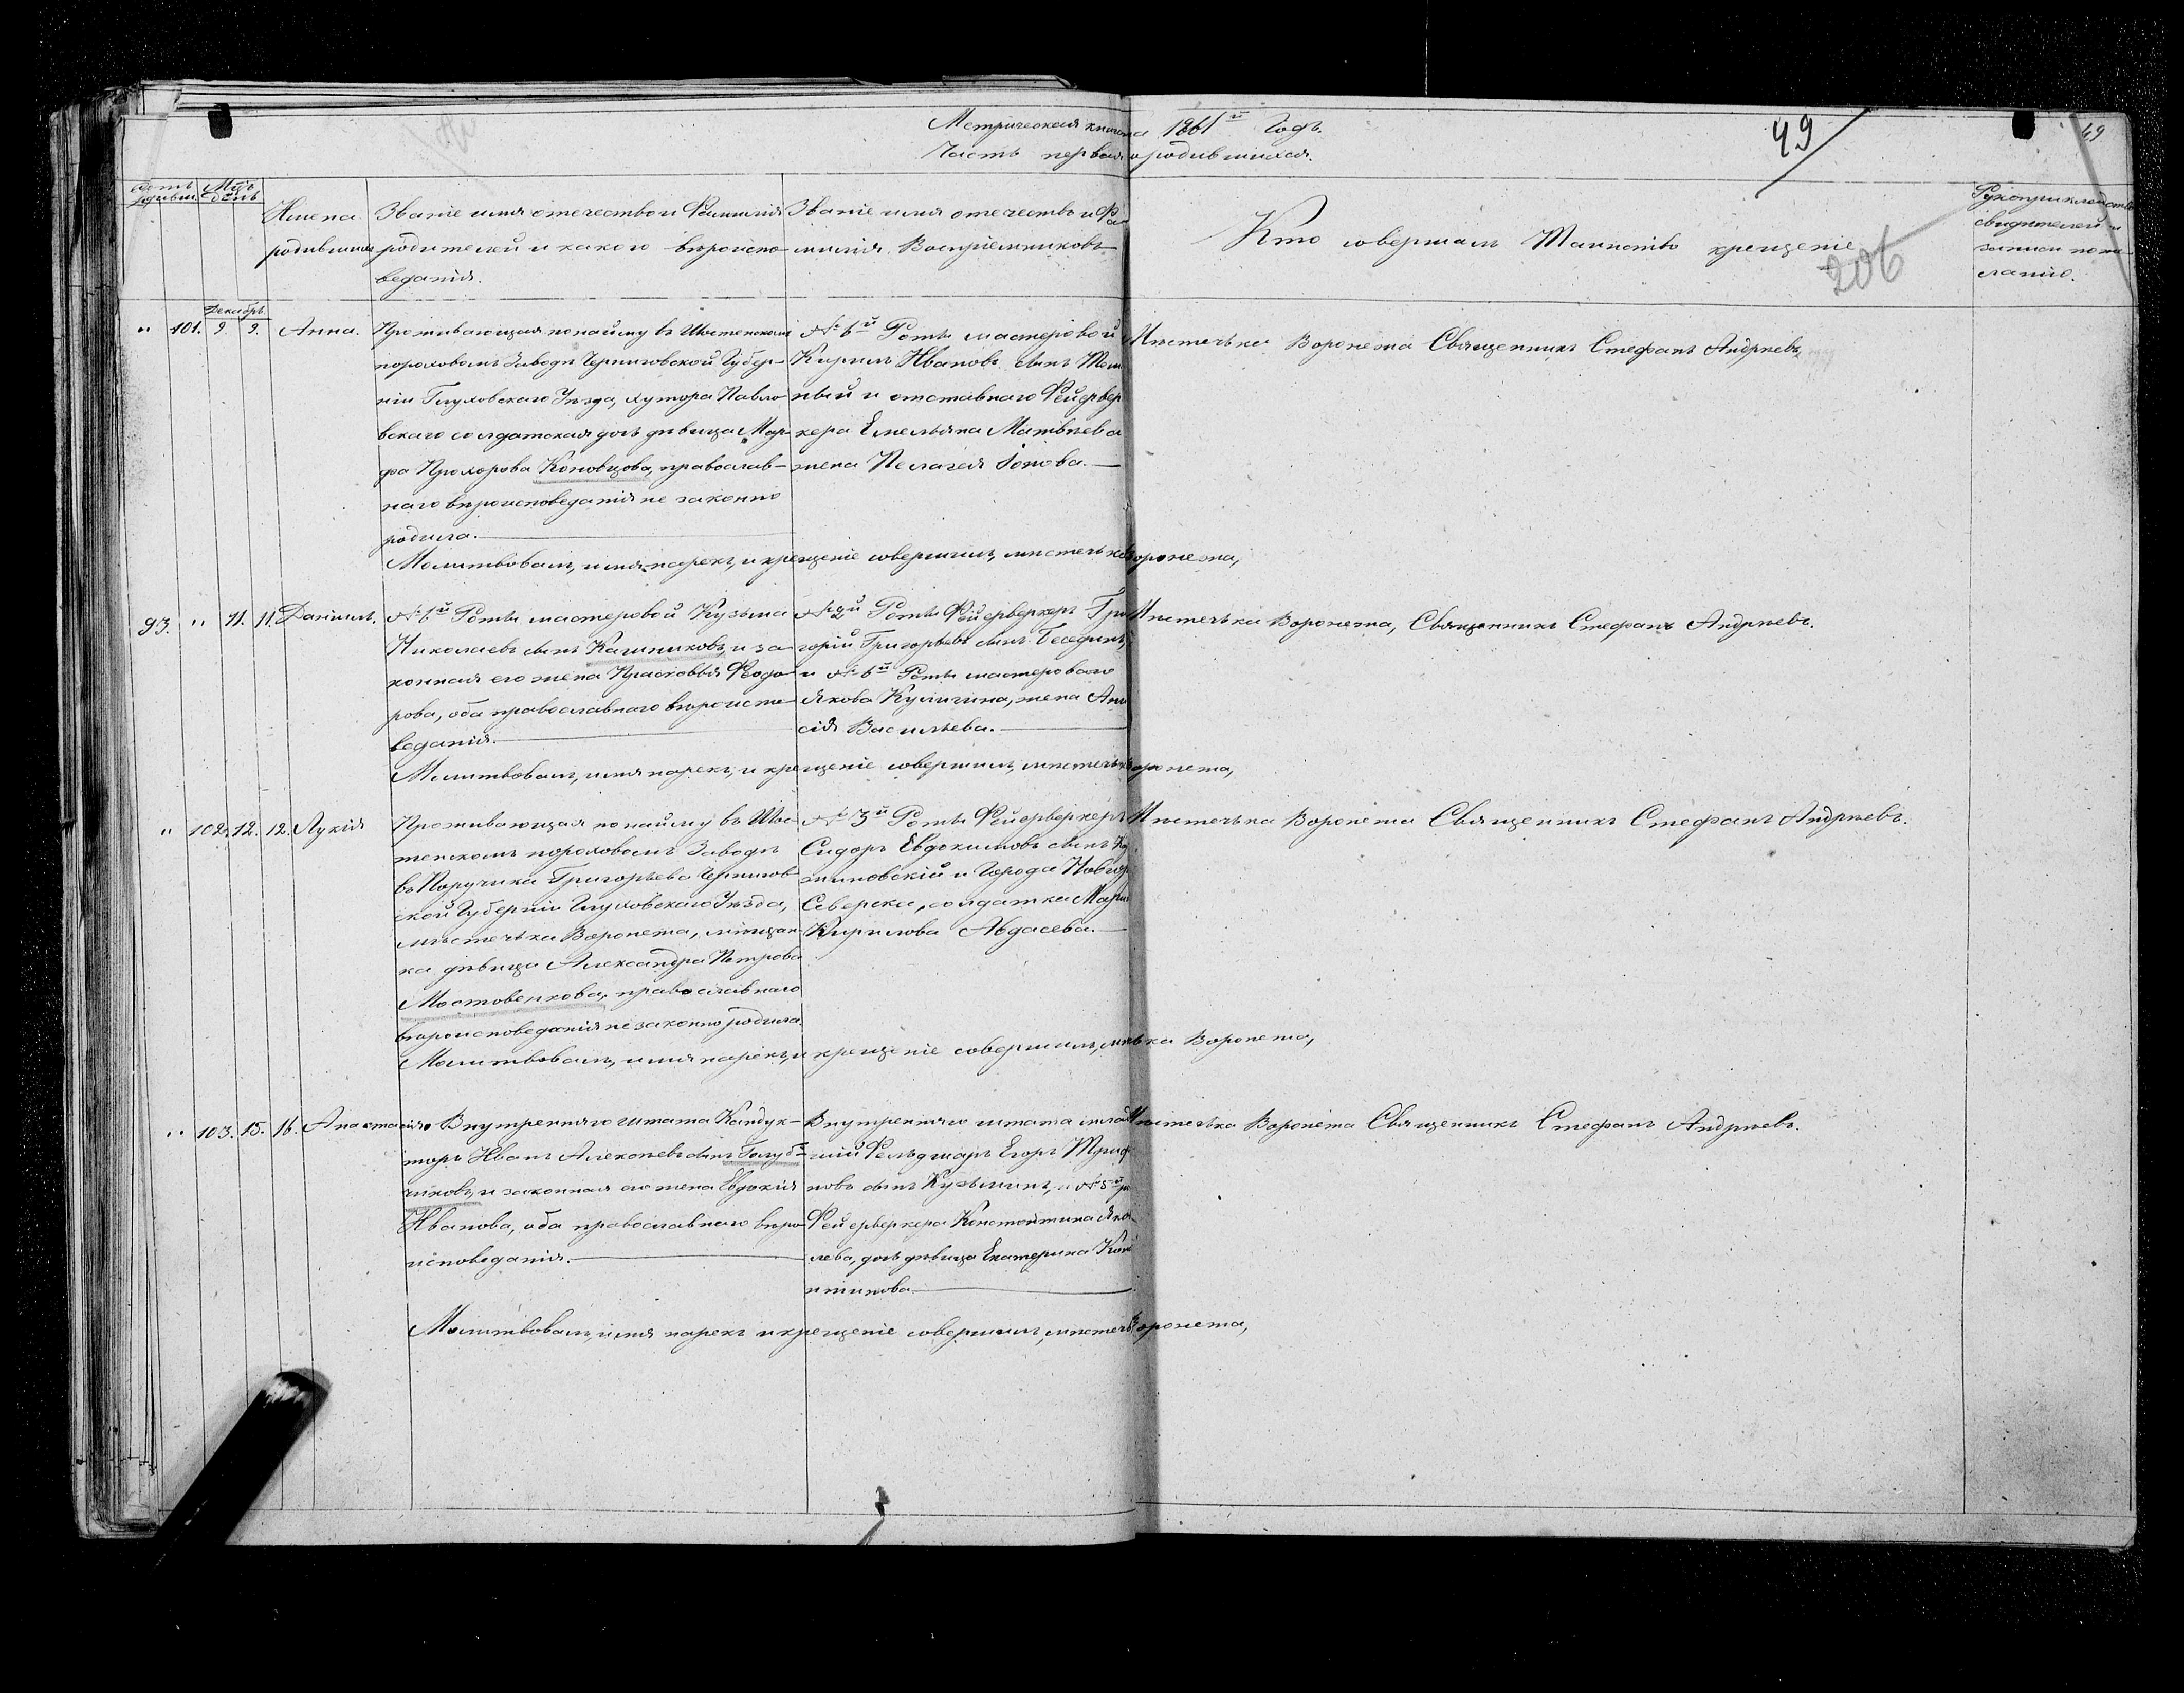 Метрическая книга 1861й Годъ.
Часть первая о родившихся.
49
49
206
Счетъ родивши
Мцъ
День
Имена
родившихся
Званіе имя отечество и Фамилія
родителей и какого вѣроиспо-
веданія.
Званіе имя отечество и Фа
милія Воспріемниковъ
Кто совершалъ Таинство крещеніе
Рукоприкладство
свидетелей
записи по же-
ланію.
Декабрь
" 101. 9 9. Анна.
Проживающая по найму въ Шостенском
пороховомъ Заводѣ Черниговской Губер-
ніи Глуховскаго Уѣзда, хутора Павло-
вскаго солдатская дочь дѣвица Мар-
фа Прохорова Коновцова, православ-
наго вѣроисповеданія не законно
родила.
№ 6й Роты мастеровой
Кирилъ Ивановъ сынъ
ный и отставнаго Фейервер
кера Емельяна Матвѣева
жена Пелагея Іонова.
Мѣстечка Воронежа Священникъ Стефанъ Андрѣевъ,
Молитвовалъ, имя нарекъ, и крещеніе совершилъ, мѣстечка Воронежа,
93. " 11. 11. Даніилъ.
№ 6й Роты мастеровой Кузьма
Николаевъ сынъ Калинниковъ, и за-
конная его жена Прасковья Федо-
рова, оба православнаго вѣроиспо-
веданія.
№ 2й Роты Фейерверкеръ Гри
горій Григорьевъ сынъ Беседин,
и № 6й Роты мастероваго
Якова Куличина, жена Ани
сія Васильева.
Мѣстечка Воронежа, Священникъ Стефанъ Андрѣевъ.
Молитвовалъ, имя нарекъ, и крещеніе совершилъ, мѣстечка Воронежа,
" 102. 12. 12. Лукія
Проживающая по найму въ Шос-
тенскомъ пороховомъ Заводѣ
въ Поручика Григорьева Чернигов
ской Губерніи Глуховскаго Уѣзда,
мѣстечка Воронежа, мѣщан-
ка дѣвица Александра Петрова
Мостовенкова, православнаго
вѣроисповеданія не законно родила.
№ 3й Роты Фейерверкеръ
Сидоръ Евдокимовъ сынъ
миновскій и Города Новгор
Северска, солдатка Мари
Кирилова Авдасева.
Мѣстечка Воронежа Священникъ Стефанъ Андрѣевъ.
Молитвовалъ, имя нарекъ, и крещеніе совершилъ, мѣ ка Воронежа,
" 103. 15. 16. Анастасія.
Внутренняго штата Кондук-
торъ Иванъ Алексѣевъ сынъ Голуб-
чиковъ, и законная его жена Евдокія
Иванова, оба православнаго вѣро-
исповеданія.
Внутренняго штата млад
шій Фельдшаръ Егоръ Триф
новъ сынъ Кузьминъ, и № 5й
Фейерверкера Константина Яков
лева, дочь дѣвица Екатерина Конс
нтинова
Мѣстечка Воронежа Священникъ Стефанъ Андрѣевъ.
Молитвовалъ, имя нарекъ и крещеніе совершилъ, мѣстечк Воронежа,